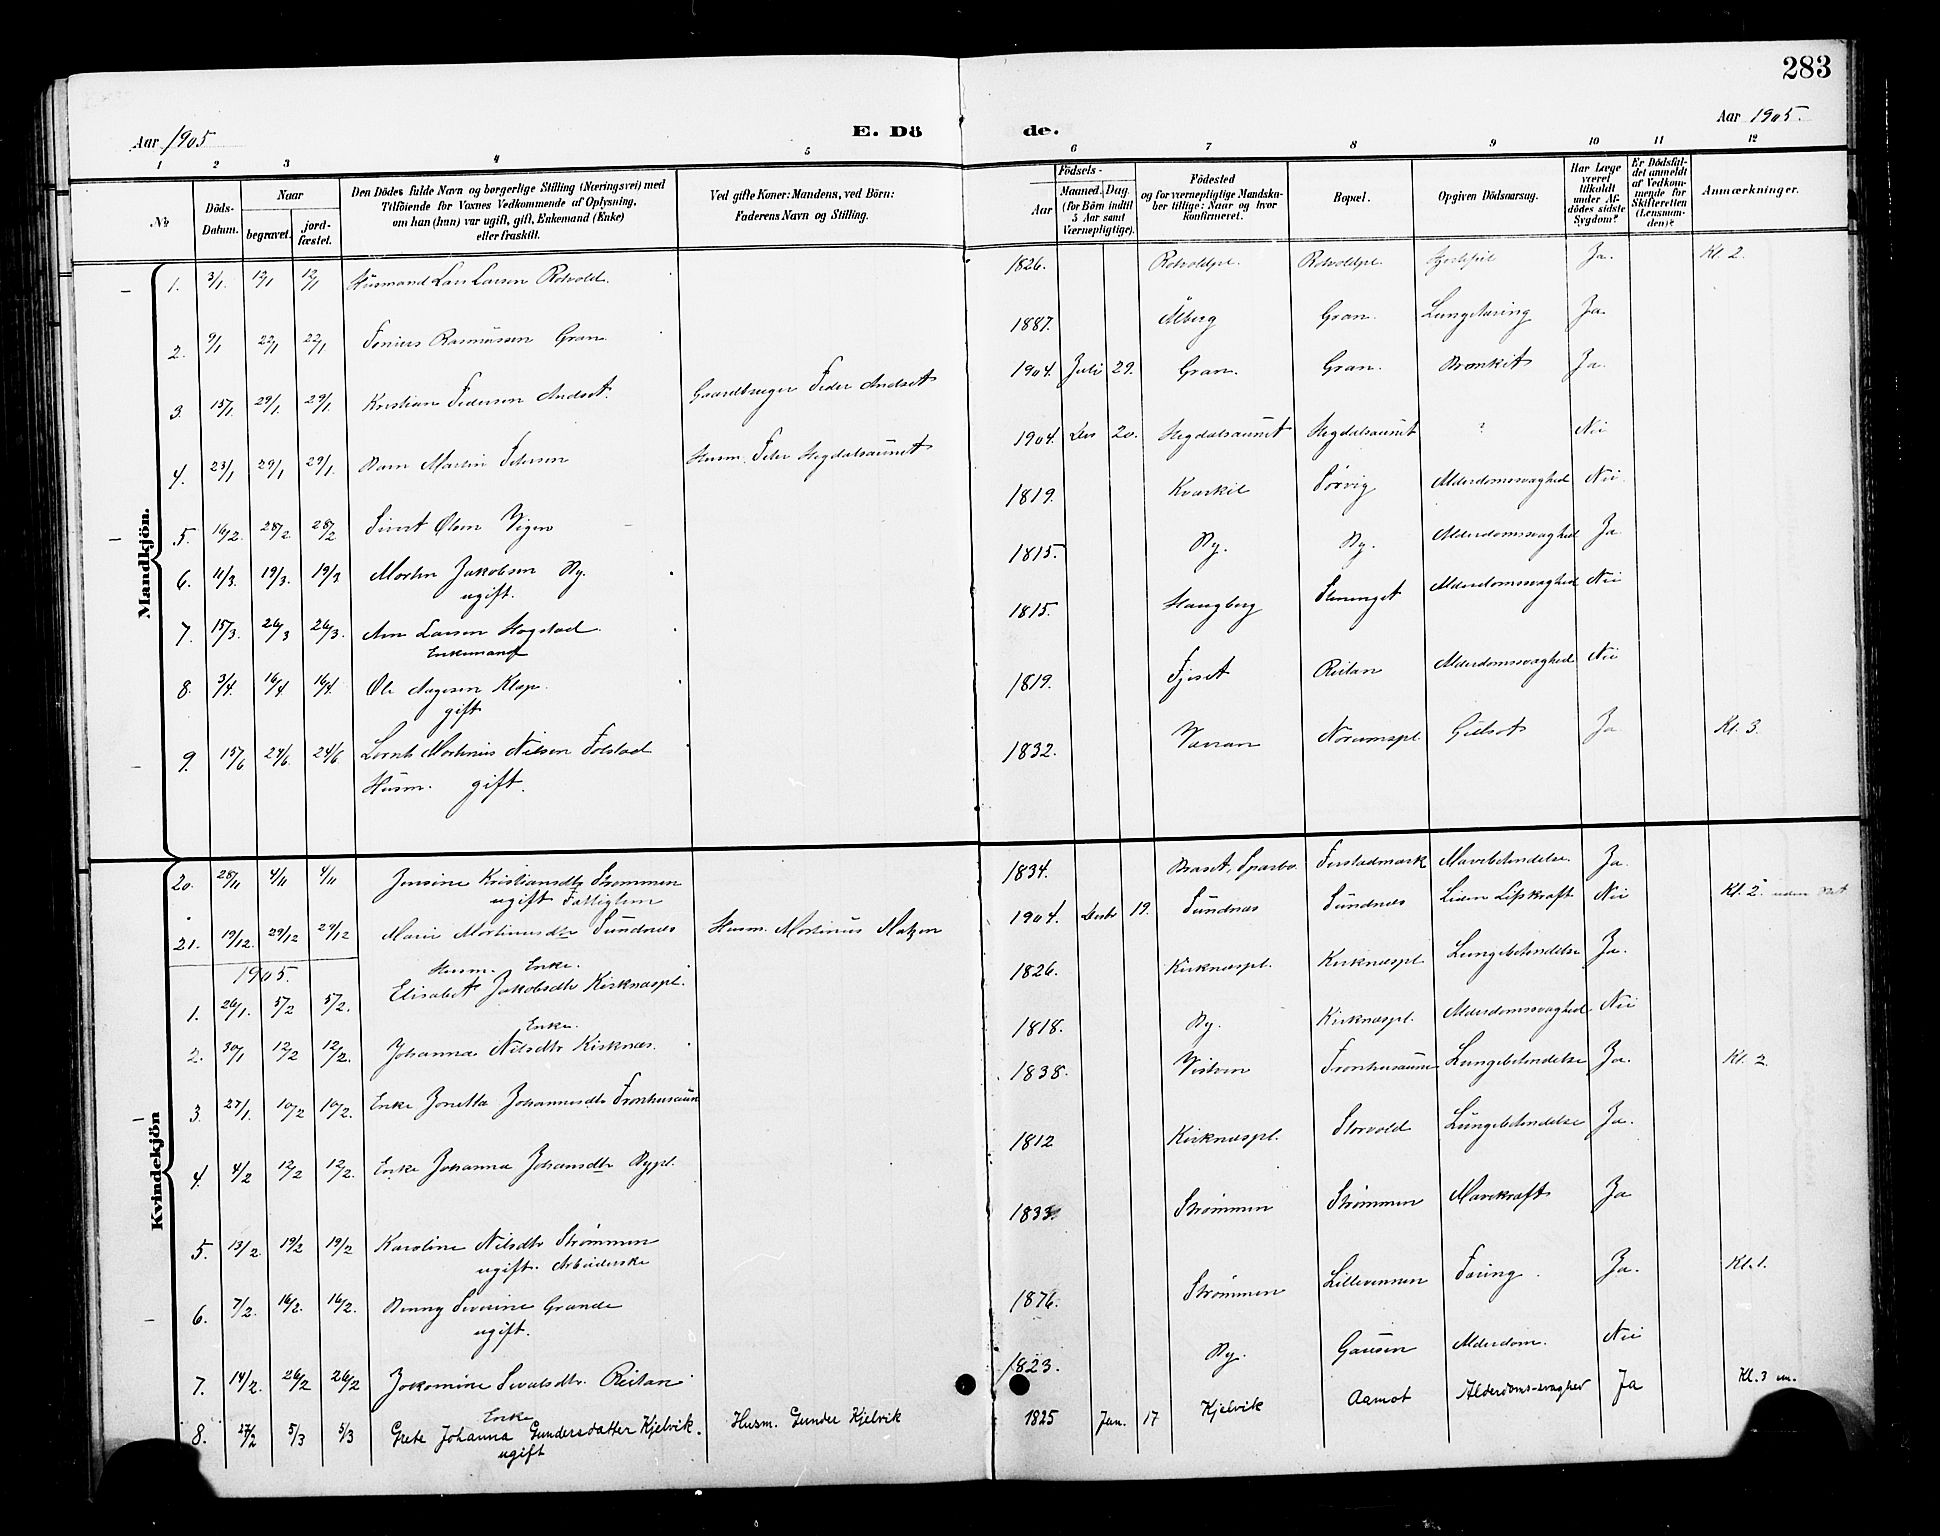 283
Aar 1905
E. Dö de.
Aar 1905.
1 2 3 4 5 6 7 8 9 10 11 12
No
Döds-Datum.
Naar
begravet.
jord-fæstet.
Den Dödes fulde Navn og borgerlige Stilling (Næringsvei) med Tilföiende for Voxnes Vedkommende af Oplysning, om han (hun) var ugift, gift, Enkemand (Enke) eller fraskilt.
Ved gifte Koner: Mandens, ved Börn: Faderens Navn og Stilling.
Födsels-
Aar
Maaned. Dag.
(for Börn indtil 5 Aar samt Værnepligtige).
Födested og for værnepligtige Mandskaber tillige: Naar og hvor konfirmeret.
Bopæl.
Opgiven Dödsaarsag.
Har Læge været tilkaldt under Afdödes sidste Sygdom?
Er Dödsfaldet anmeldt af Vedkommende for Skifteretten (Lensmanden)?
Anmærkninger.
Mandkjön.
1. 3/1. 12/1 12/1 Husmand Lars Larsen Rotvold. 1826. Rotvoldpl. Rotvoldpl. Ja. Kl. 2.
2. 9/1 22/1 22/1 Rasmussen Gran 1887. Ålberg Gran. Lungetæring Ja.
3. 15/1. 29/1. 29/1. Kristian Pedersen Andset. Gaardbruger Peder Andset 1904. Juli 29. Gran. Gran. Bronkit Ja.
4. 23/1 29/1 29/1. Barn Martin Petersen Husm. Peter Hegdalsaunet 1904. Des 20. Hegdalsaunet Hegdalsaunet ? Nei
5. 16/2. 28/2. 28/2 Sivert Olsen Vigen 1819. Kvarkil Sørvig Alderdomssvaghed Nei.
6. 11/3. 19/3. 19/3 Morten Jakobsen By. 1815. By. By. Alderdomssvaghed Ja
ugift.
7. 15/3. 26/3 26/3. Arn Larsen Hogstad. 1815. Haugberg Alderdomssvaghed Nei
Enkemand
8. 3/4. 16/4 16/4. Ole Aagesen Klep. 1819. Fjeset Reitan Alderdomssvaghed Nei
gift
9. 15/6 24/6. 24/6 Lornts Mortinus Nilsen Folstad 1832. Vanan Norumspl. Gulsot Ja Kl. 3.
Husm. gift.
Kvindekjön
20. 28/11 4/11 4/11 Jensine Kristiansdtr Strømmen 1834. Braset, Sparbo. Mavebetendelse. Ja.
ugift Fattiglem
21. 19/12. 29/12 29/12 Marie Mortinusdtr Sundnes Husm. Mortinus Matzen 1904. Desbr 19. Sundnes Sundnes Liden Lifskraft Nei Kl. 2.
1905. Husm. Enke.
1. 26/1. 5/2 5/2. Elisabet Jakobsdtr Kirknæspl. 1826. Kirknæspl. Kirknæspl Lungebetendelse Ja.
Enke.
2. 30/1 12/2 12/2. Johanna Nilsdtr Kirknæs. 1818. By. Kirknæspl. Alderdomssvaghed. Nei
3. 27/1. 10/2 10/2. Enke Jonetta Johannesdtr Tronhusaun 1838. Vistven Tronhusaune Lungebetendelse Ja. Kl. 2.
4. 4/2 12/2 12/2. Enke Johanna Johansdtr Bypl. 1812 Kirknæspl. Storvold Lungebetendelse Ja.
5. 13/2. 19/2 19/2 Karoline Nilsdtr Strømmen 1833. Strømmen Strømmen Mavekræft Ja
ugift. Arbeiderske
6. 7/2. 16/2. 16/2. Benny Severine Grande 1876. Strømmen Lillevennen Tæring. Ja. Kl. 1.
ugift.
7. 14/2. 26/2 26/2 Jokomine Sivalsdtr. Reitan 1823. By. Gausen Alderdom. Nei
Enke
8. 27/2 5/3 5/3 Grete Johanna Gundersdatter Kjelvik. Husm. Gunder Kjelvik 1825 Jan. 17 Kjelvik Aamot Alderdoms-svaghed Ja Kl. 3 un.
ugift